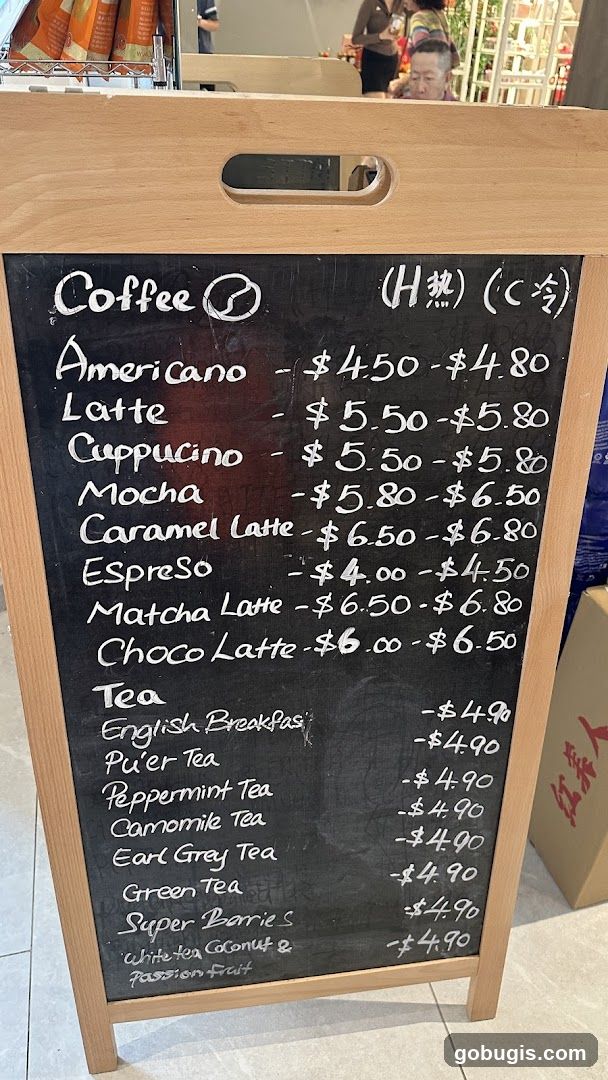 Coffee (H热) (C冷)
Americano - $4.50 - $4.80
Latte - $5.50 - $5.80
Cuppucino - $5.50 - $5.80
Mocha - $5.80 - $6.50
Caramel Latte - $6.50 - $6.80
Espreso - $4.00 - $4.50
Matcha Latte - $6.50 - $6.80
Choco Latte - $6.00 - $6.50
Tea
English Breakfas - $4.90
Pu'er Tea - $4.90
Peppermint Tea - $4.90
Camomile Tea - $4.90
Earl Grey Tea - $4.90
Green Tea - $4.90
Super Berries - $4.90
White tea Coconut & - $4.90
Passion fruit
gobugis.com